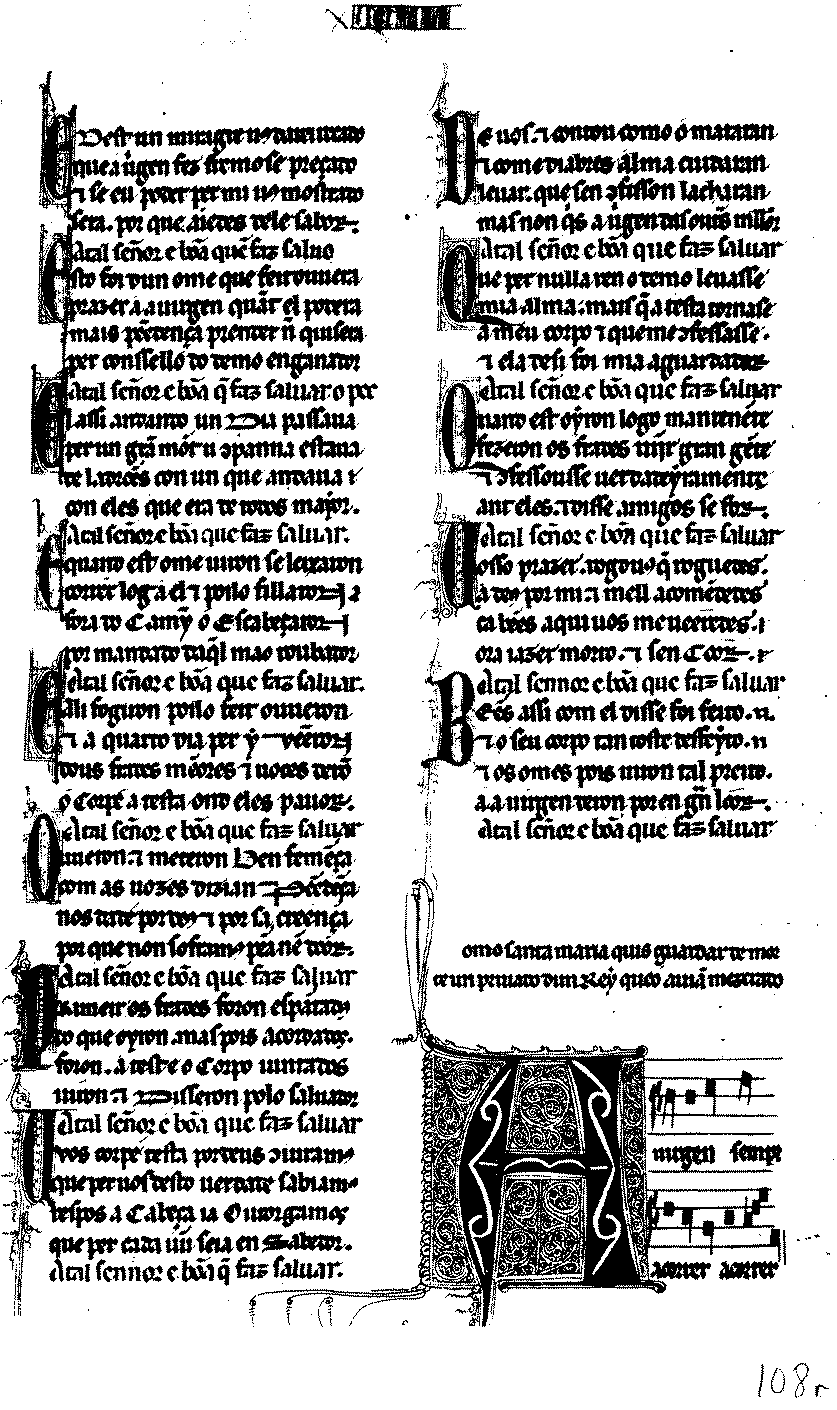 E dest un miragre uos direi
que a uirgen fez fremoso preçado
⁊ se eu poder per mi uos mostrado
sera. por que aiedes dele sabor.
Atal señor e bõa que faz saluar
sto foi dun ome que feit ouuera
prazer a a uirgen quãt el podera
mais pẽedença prender nõ quisera
per conssello do demo enganador
Atal señor e bõa q̃ faz saluar o pec
l assi andando un Dia passaua
per un grã mõt u cõpanna estaua
de Ladrões con un que andaua i
con eles que era de todos mayor.
Atal señor e bõa que faz saluar.
E quand est ome uiron se leixaron
correr log a el ⁊ polo fillaron
fora do Camỹ o Escabeçaron
por mandado daq̃l mao roubador
Atal señor e bõa que faz saluar.
E ali fogiron poilo feit ouueron
⁊ a quarto dia per y veeron
dous frades mẽores ⁊ uozes deron
o Corpo a testa ond eles pauor.
Atal señor e bõa que faz saluar
Oyueron ⁊ meteron Ben femença
com as uozes dizian Pẽedẽça
nos dade por deus ⁊ por sa creença
por que non sofram9 pẽa nẽ door.
Atal señor e bõa que faz saluar
Primeir os frades foron espantados
do que oyron. mas pois acordados.
foron. a teste o Corpo iuntados
uiron ⁊ Disseron polo saluador
Atal señor e bõa que faz saluar
Vos corpo e testa por deus ↄiuram9
que per uos desto uerdade sabiam9
respos a Cabeça ia Outorgamos
que per cada uũ seia en Sabedor.
Atal sennor e bõa q̃ faz saluar.
De uos. ⁊ conton como o mataran
⁊ come diabres a alma cuidaran
leuar. que sen ↄfisson lacharan
mas non q̃s a uirgen das outras mellor
Atal señor e bõa que faz saluar
Que per nulla ren o demo leuasse
mia alma. mais q̃ a testa tornasse
a meu corpo ⁊ que me ↄfessasse.
⁊ ela desi foi mia aguardador
Atal señor e bõa que faz saluar
Quand est oyron logo mantenẽte
fezeron os frades uĩjr gran gẽte
⁊ ↄfessousse uerdadeyramente
ant eles. ⁊ disse amigos se for.
Atal señor e bõa que faz saluar
Vosso prazer. rogouos q̃ roguedes.
a deus por mi. ⁊ mell acomẽdedes
ca bẽes aqui uos me ueeredes. i
ora iazer morto. ⁊ sen Coor.
Atal sennor e bõa que faz saluar
Bẽes assi com el disse foi feito.
⁊ o seu corpo tan toste desfeyto.
⁊ os omes pois uiron tal preito.
a a uirgen deron poren grã loor.
Atal señor e bõa que faz saluar
omo santa maria quis guardar de mor
te un priuado dun Rey queo auiã mezcrado
A uirgen sempr
acorrer acorrer
108r